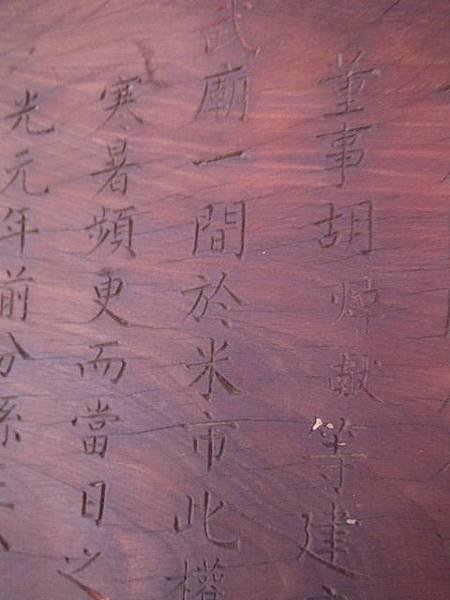 董事胡焯猷等建
武廟一間於米市此權
寒暑頻更而當日之
光元年前分係